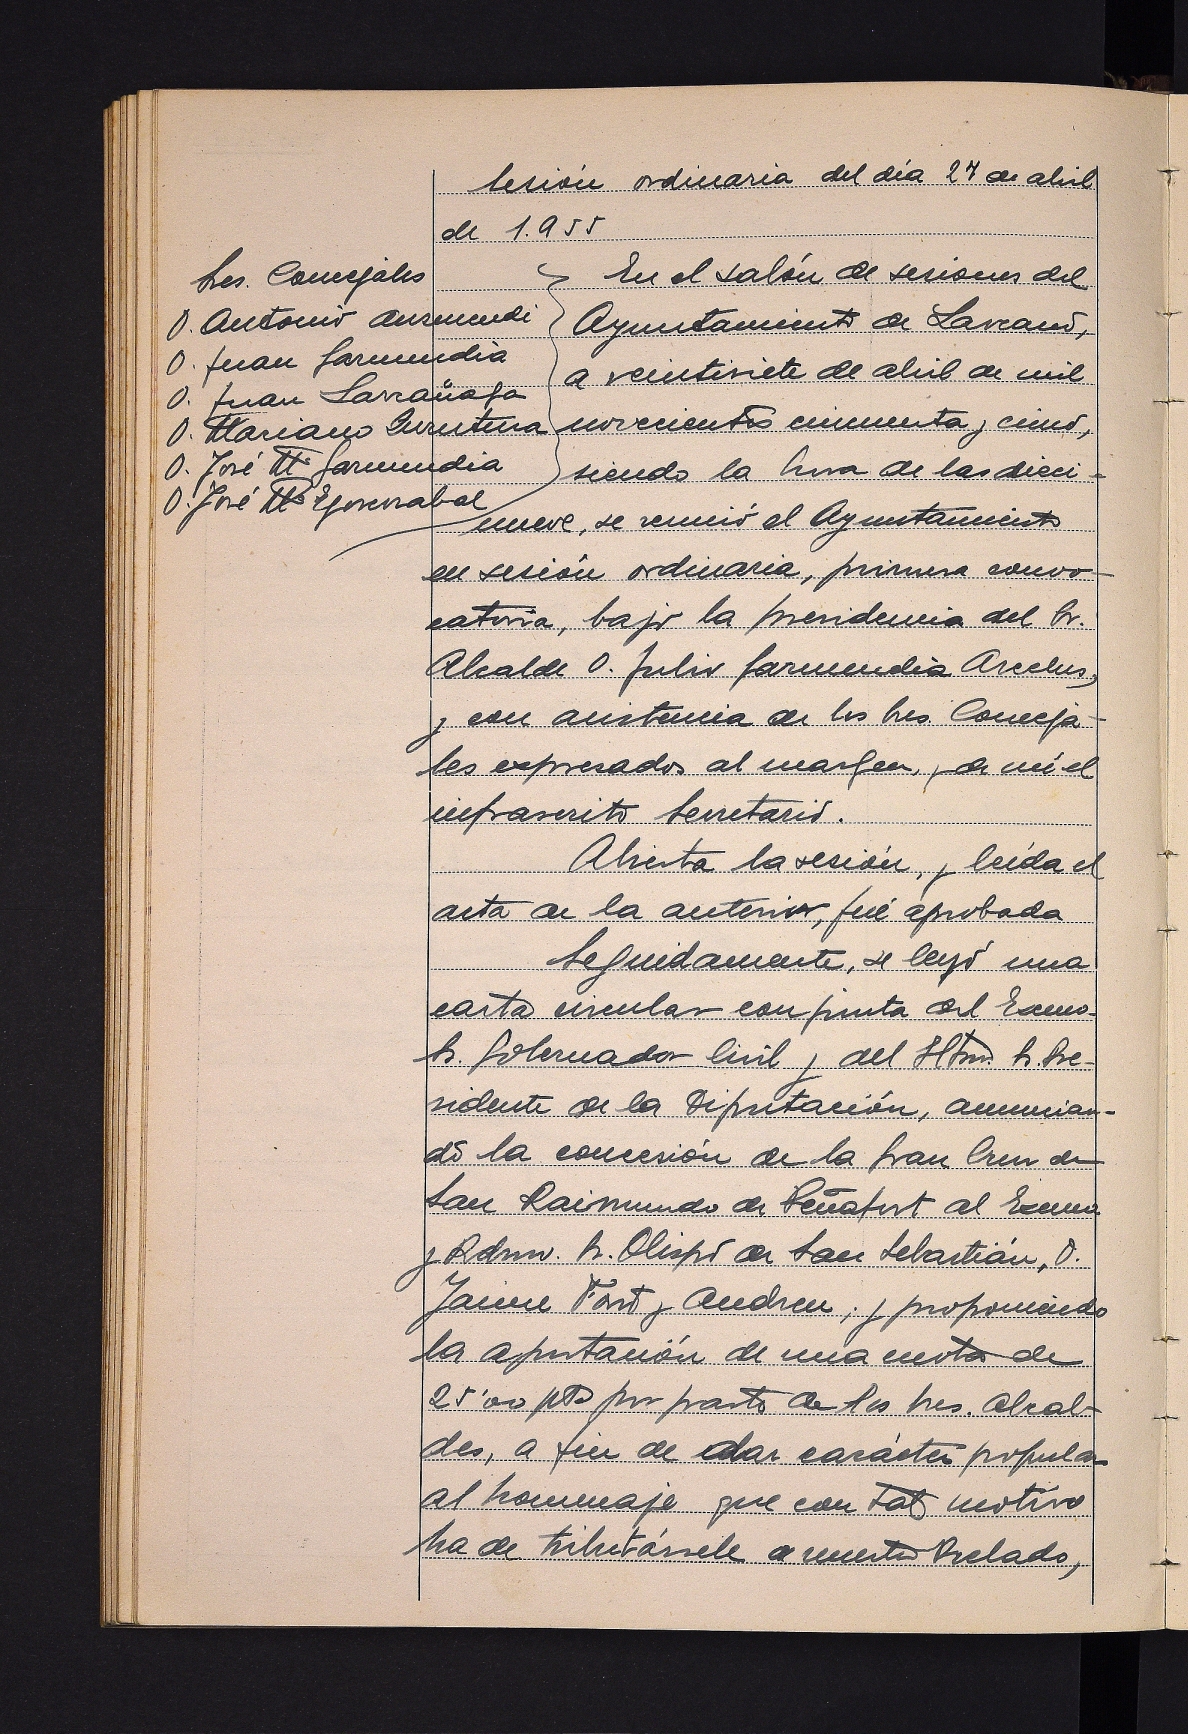 Sesión ordinaria del día 27 de abril
de 1.955
Sres. Concejales
D. Antonio Aursmendi
D. Juan Garmendia
D. Juan Larrañaga
D. Mariano Gurutena
D. José Mª Garmendia
D. José Mª Egoscozabal
En el salón de sesiones del
Ayuntamiento de Lazcano,
a veintisiete de abril de mil
novecientos cincuenta y cinco,
siendo la hora de las dieci-
nueve, se reunió el Ayuntamiento
en sesión ordinaria, primera convo-
catoria, bajo la presidencia del Sr.
Alcalde D. Julio Garmendia Arcelus,
y con asistencia de los Sres. Conceja-
les expresados al margen, y de mí el
infrascrito Secretario.
Abierta la sesión, y leída el
acta de la anterior, fué aprobada
Seguidamente, se leyó una
carta circular conjunta del Excmo.
Sr. Gobernador Civil y del Iltmo. Sr. Pre-
sidente de la Diputación, anuncian-
do la concesión de la Gran Cruz de
San Raimundo de Peñafort al Excmo.
y Rdmo. Sr. Obispo de San Sebastián, D.
Jaime Font y Andreu; y proponiendo
la aportación de una cuota de
25'00 pts por parte de los Sres. Alcal-
des, a fin de dar carácter popular
al homenaje que con tal motivo
ha de tributársele a nuestro Prelado,